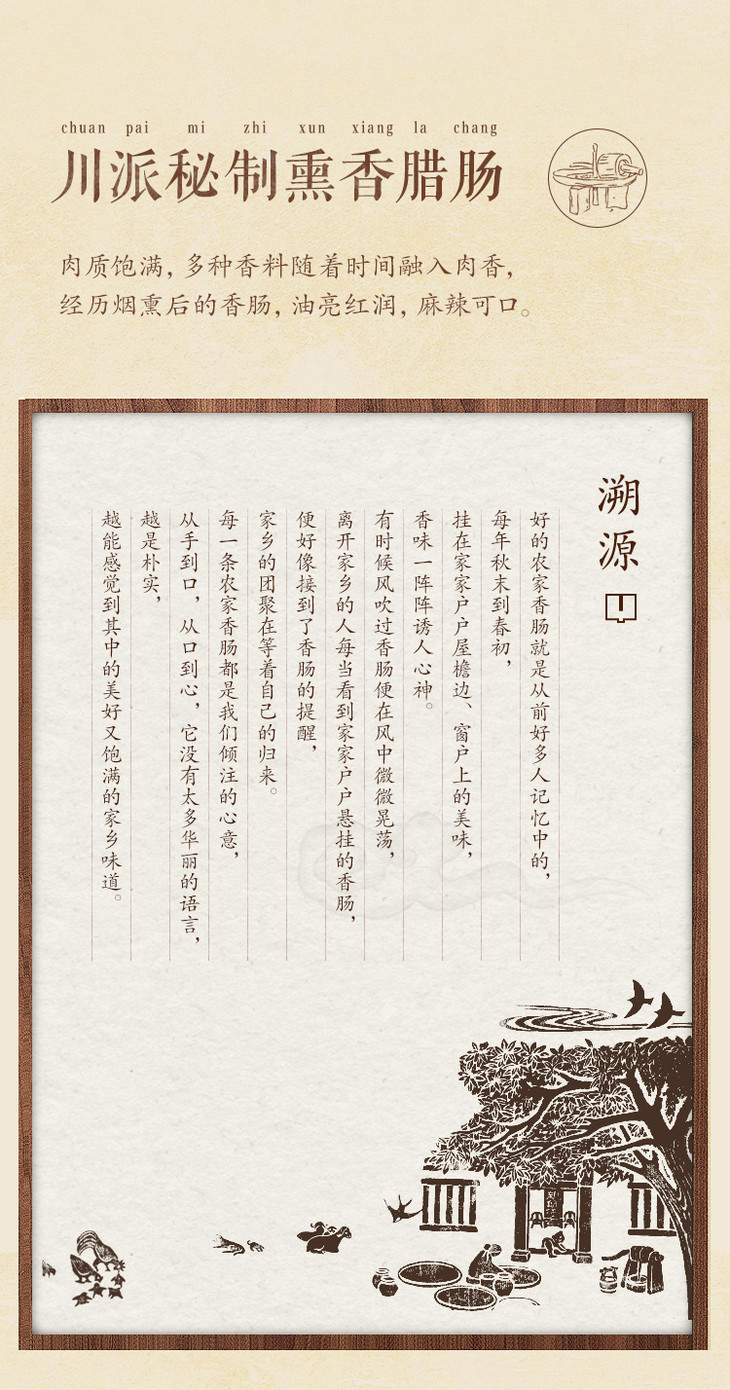 chuan pai mi zhi xun xiang la chang
川派秘制熏香腊肠
肉质饱满，多种香料随着时间融入肉香，
经历烟熏后的香肠，油亮红润，麻辣可口。
溯源
好的农家香肠就是从前好多人记忆中的，
每年秋末到春初，
挂在家家户户屋檐边、窗户上的美味，
香味一阵阵诱人心神。
有时候风吹过香肠便在风中微微晃荡，
离开家乡的人每当看到家家户户悬挂的香肠，
便好像接到了香肠的提醒，
家乡的团聚在等着自己的归来。
每一条农家香肠都是我们倾注的心意，
从手到口，从口到心，它没有太多华丽的语言，
越是朴实，
越能感觉到其中的美好又饱满的家乡味道。